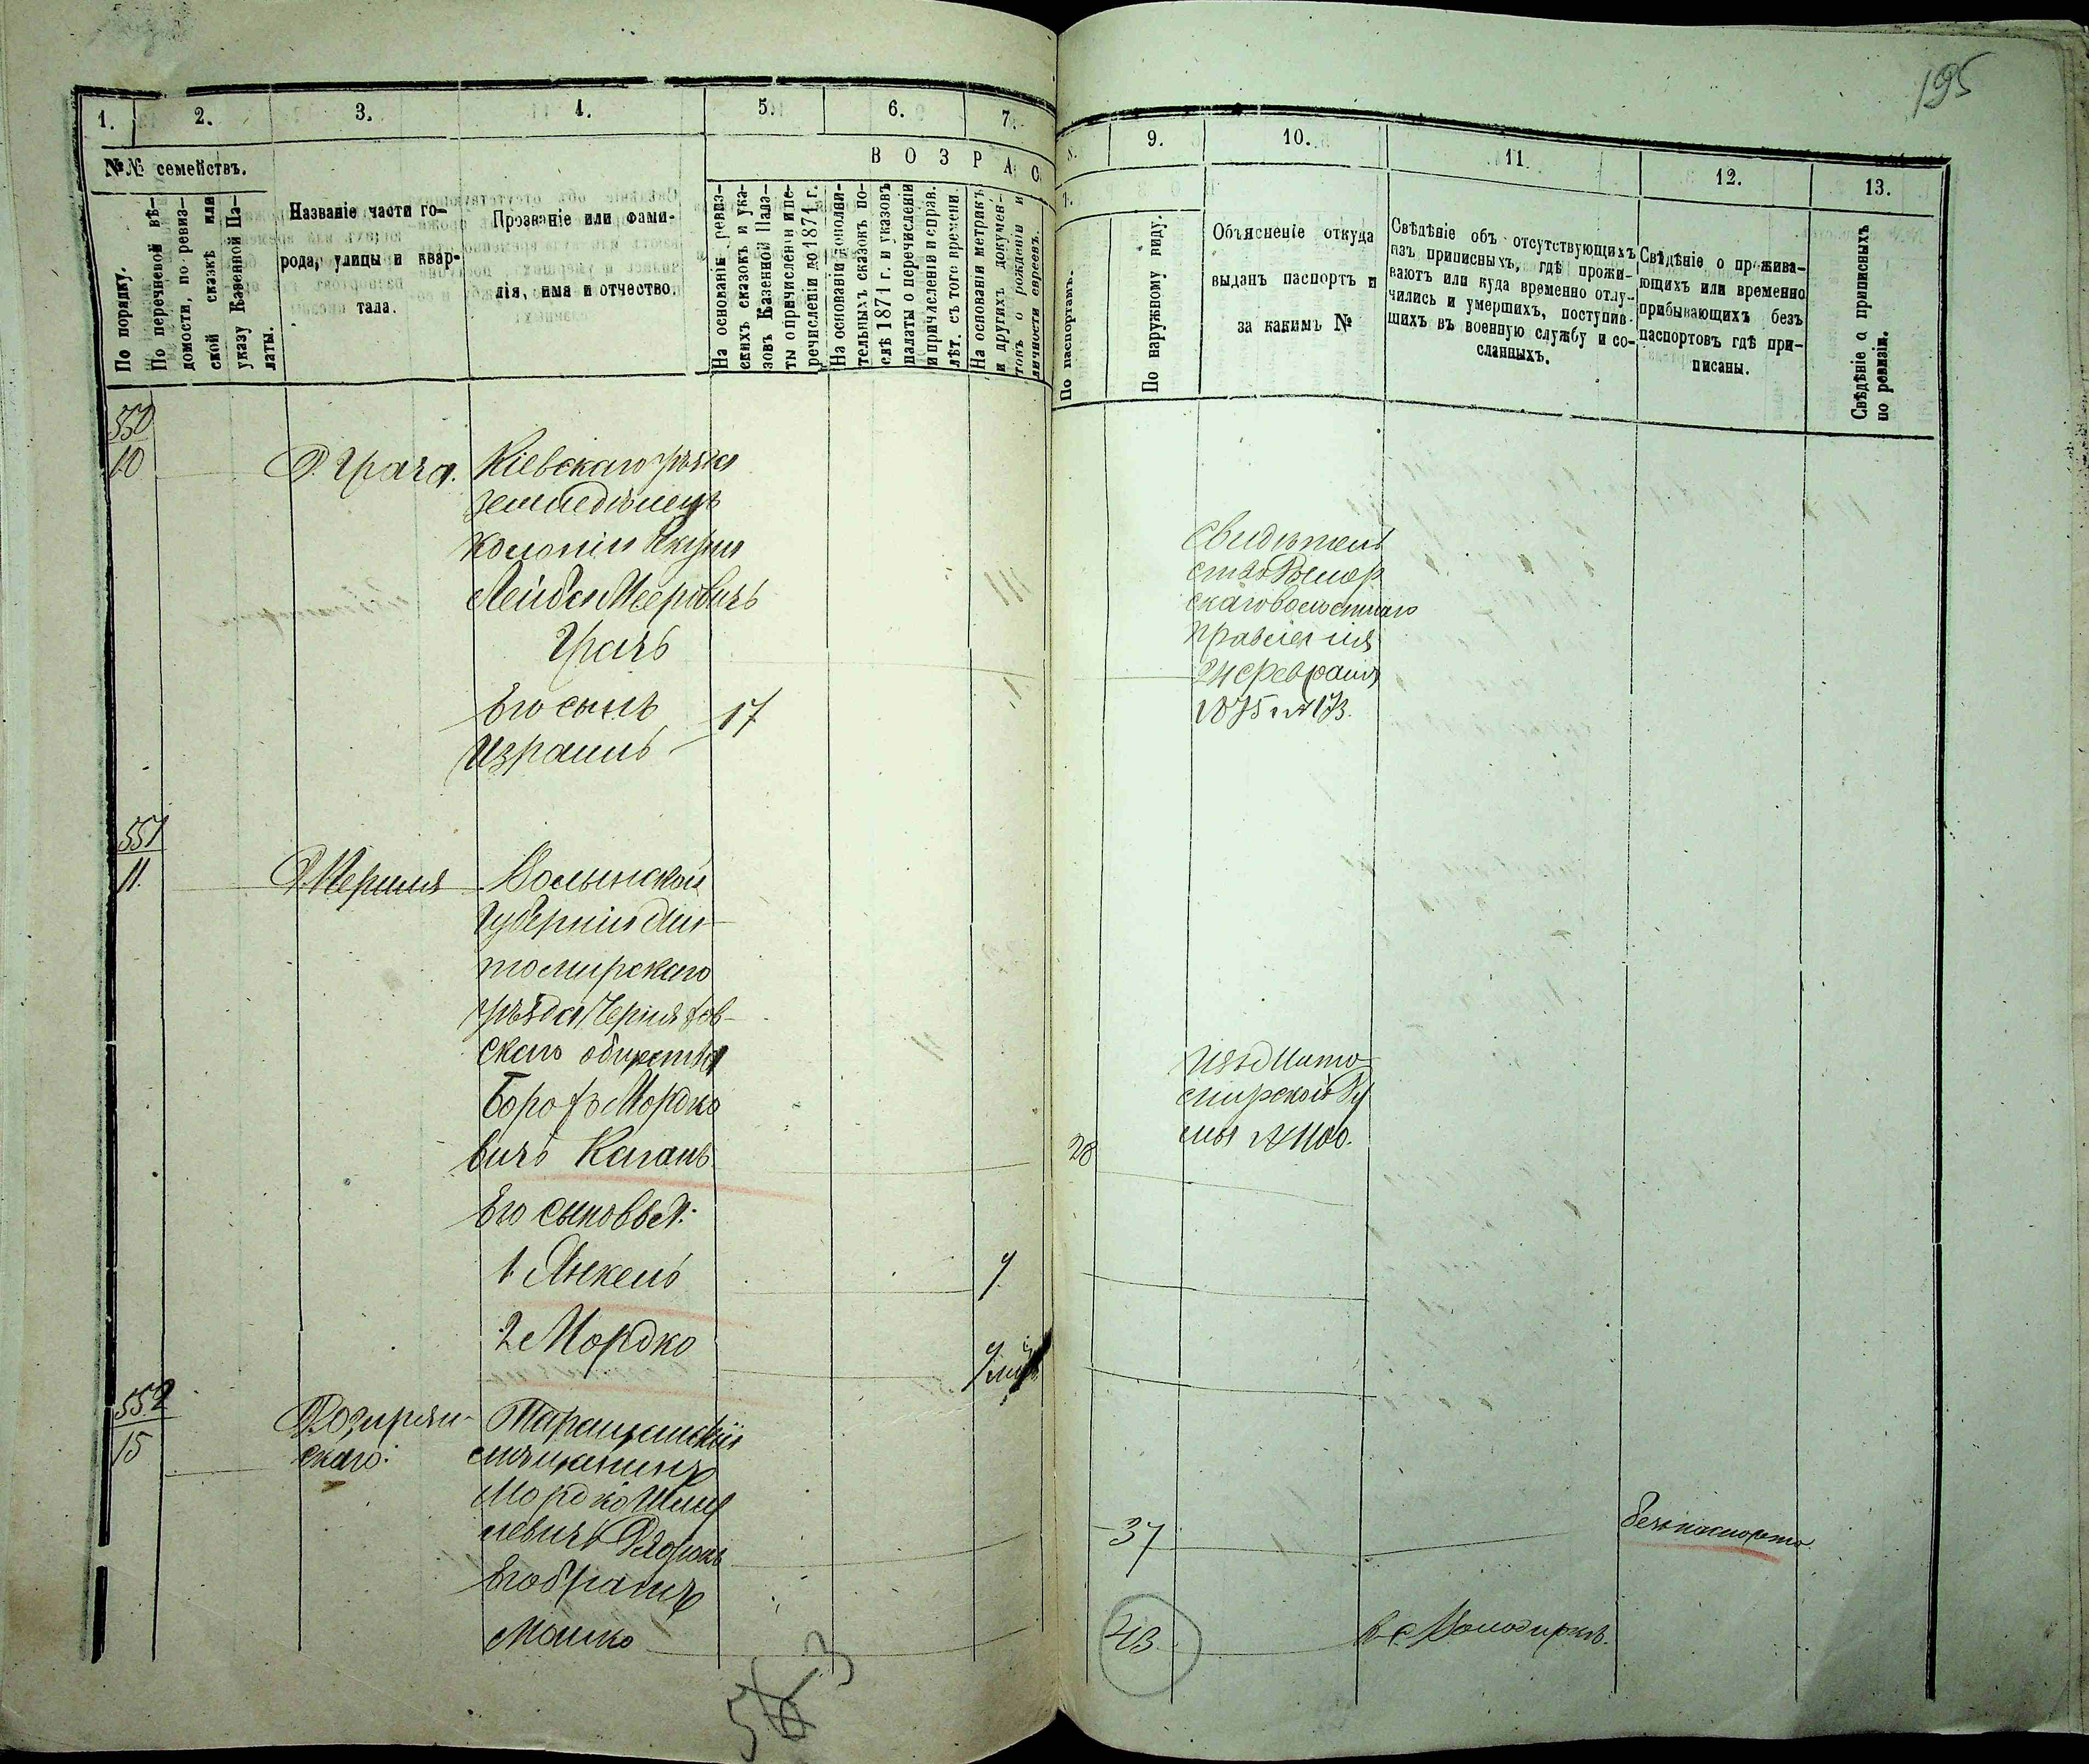 195
1.
2.
3.
4.
5.
6.
7.
8.
9.
10.
11.
12.
13.
№№ семействъ.
По порядку.
По перечневой вѣ-
домости, по ревиз-
ской сказкѣ или
указу Казенной Па-
латы.
Названіе части го-
рода, улицы и квар-
тала.
Прозваніе или фами-
лія, имя и отчество.
ВОЗРАС
Т.
На основаніи ревиз-
скихъ сказокъ и ука-
зовъ Казенной Пала-
ты о причисленіи и пе-
речисленіи до 1871 г.
На основаніи дополни-
тельныхъ сказокъ по-
слѣ 1871 г. и указовъ
палаты о перечисленіи
и причисленіи и справ.
лѣт. съ того времени.
На основаніи метрикъ
и другихъ докумен-
товъ о рожденіи и
личности евреевъ.
По паспортамъ.
По наружному виду.
Объясненіе откуда
выданъ паспортъ и
за какимъ №
Свѣдѣніе объ отсутствующихъ
изъ приписныхъ, гдѣ прожи-
ваютъ или куда временно отлу-
чились и умершихъ, поступив-
шихъ въ военную службу и со-
сланныхъ.
Свѣдѣніе о прожива-
ющихъ или временно
прибывающихъ безъ
паспортовъ гдѣ при-
писаны.
Свѣдѣніе о приписныхъ
по ревизіи.
550
10
Д. Грача.
Кіевскаго уѣзда
земледѣлецъ
колоніи
Лейба Мееровичъ
Грачъ
Его сынъ
17
Израиль
Свидѣтель
ство
скаго волостнаго
правленія
24 февраля
1875 № 173.
551
11.
Волынской
губерніи Жи-
томирскаго
уѣзда Черняхов-
скаго общества
Борохъ Мордко
вичъ Каганъ
28
Изъ Жито-
мирской Ду
мы № 1100.
Его сыновья:
1. Янкель
9.
2 Мордко
552
15
скаго.
Таращанскій
мѣщанинъ
Мордко Шму
левичъ
37
безъ паспорта
Его братъ
Мошко
43
в с. Володаркѣ.